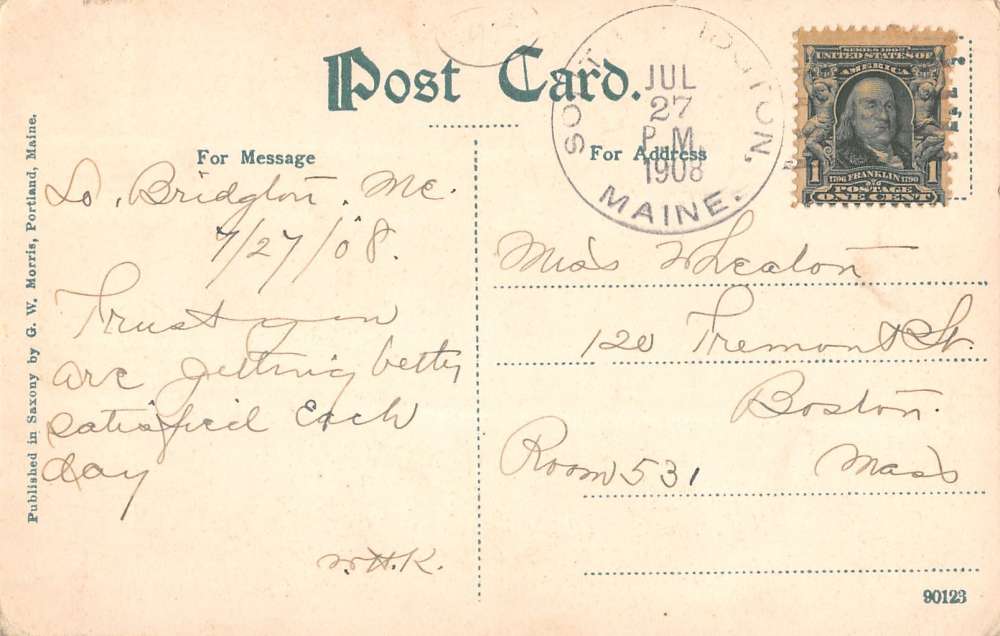 Post Card.
For Message
For Address
Published in Saxony by G. W. Morris, Portland, Maine.
So. Bridgton, Me.
7/27/08.
Trust you
are getting better
satisfied Each
day
W.H.K.
JUL
27
P.M.
1908
MAINE.
SERIES 1902
UNITED STATES OF
AMERICA
1 1
1706 FRANKLIN 1790
POSTAGE
ONE CENT
Miss Wheaton
120 Tremont St.
Boston.
Room 531 Mass
90123